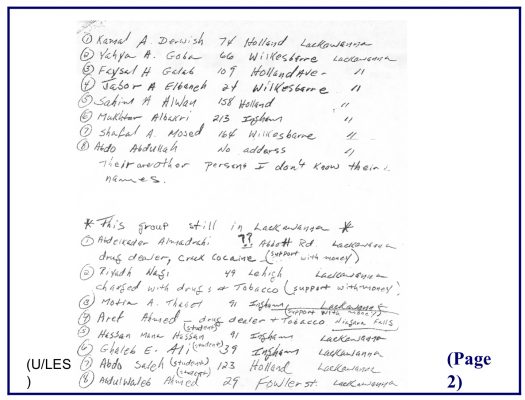 ① Kamal A. Derwish 74 Holland Lackawanna
② Yahya A. Goba 66 Wilkesbarre Lackawanna
③ Faysal H Galab 109 Holland Ave - "
④ Jabor A Elbaneh 21 Wilkesbarre "
⑤ Sahim A Alwan 158 Holland "
⑥ Mukhtar Albakri 213 Ingham "
⑦ Shafal A. Mosed 164 Wilkesbarre "
⑧ Abdo Abdullah No address "
Their are other persons I don't know their
names.
* This group still in Lackawanna *
① Abdelkader Almadrahi ?? Abbott Rd Lackawanna
drug dealer, crack cocaine (support with money)
② Riyadh Nagi 49 Lehigh Lackawanna
charged with drugs & Tobacco (support with money)
③ A. 91 Ingham Lackawanna
(support with money)
④ Aref Ahmed - drug dealer + Tobacco Niagara Falls
⑤ Hassan Mana Hassan (student) 91 Ingham Lackawanna
⑥ Ghaleb E. Ali (student) 39 Ingham Lackawanna
⑦ Abdo Saleh (student) 123 Holland Lackawanna
⑧ Abdulwaleb Ahmed (student) 29 Fowler st. Lackawanna
(U/LES
)
(Page
2)